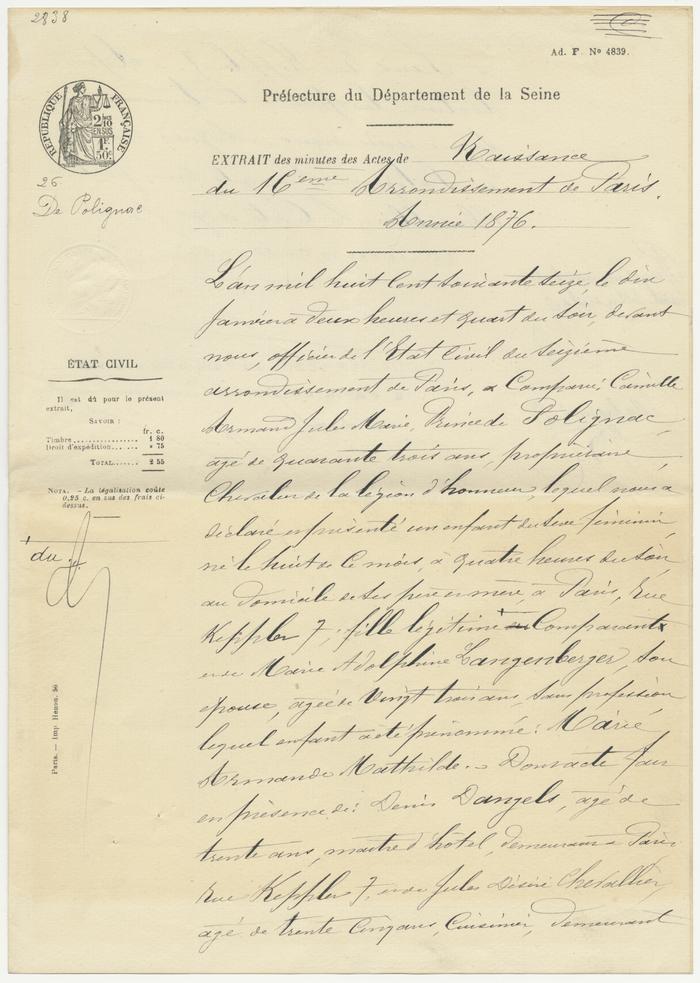 2838
Ad. F. Nº 4839.
Préfecture du Département de la Seine
RÉPUBLIQUE FRANÇAISE
2/10
EN SUS
1F
50c
EXTRAIT des minutes des Actes de Naissance
du 16eme Arrondissement de Paris.
Année 1876.
26
De Polignac
L'an mil huit cent soixante seize, le dix
Janvier à deux heures et quart du soir, devant
nous, officier de l'Etat Civil du seizième
arrondissement de Paris, a Comparu, Camille
Armand Jules Marie, Prince de Polignac,
agé de quarante trois ans, propriétaire,
Chevalier de la légion d'honneur, lequel nous a
déclaré et présenté un enfant du sexe féminin,
né le huit de ce mois, à quatre heures du soir,
au domicile de ses père et mère, à Paris, Rue
Keppler 7, fille légitime Comparant
et de Marie Adolphine Langenberger, son
épouse, agée de vingt trois ans, sans profession
lequel enfant a été prénommé: Marie
Armande Mathilde. Dont acte fait
en présence de: Denis Dangels, agé de
trente ans, maitre d'hotel, demeurant à Paris
Rue Keppler 7, et de Jules Désiré Chevallier,
agé de trente cinq ans, Cuisinier, demeurant
ÉTAT CIVIL
Il est dû pour le présent
extrait,
SAVOIR :
fr. c.
Timbre................ 1 80
Droit d'expédition..... » 75
TOTAL...... 2 55
NOTA. - La légalisation coûte
0,25 c. en sus des frais ci-
dessus.
du
Paris. — Imp Henon. 50